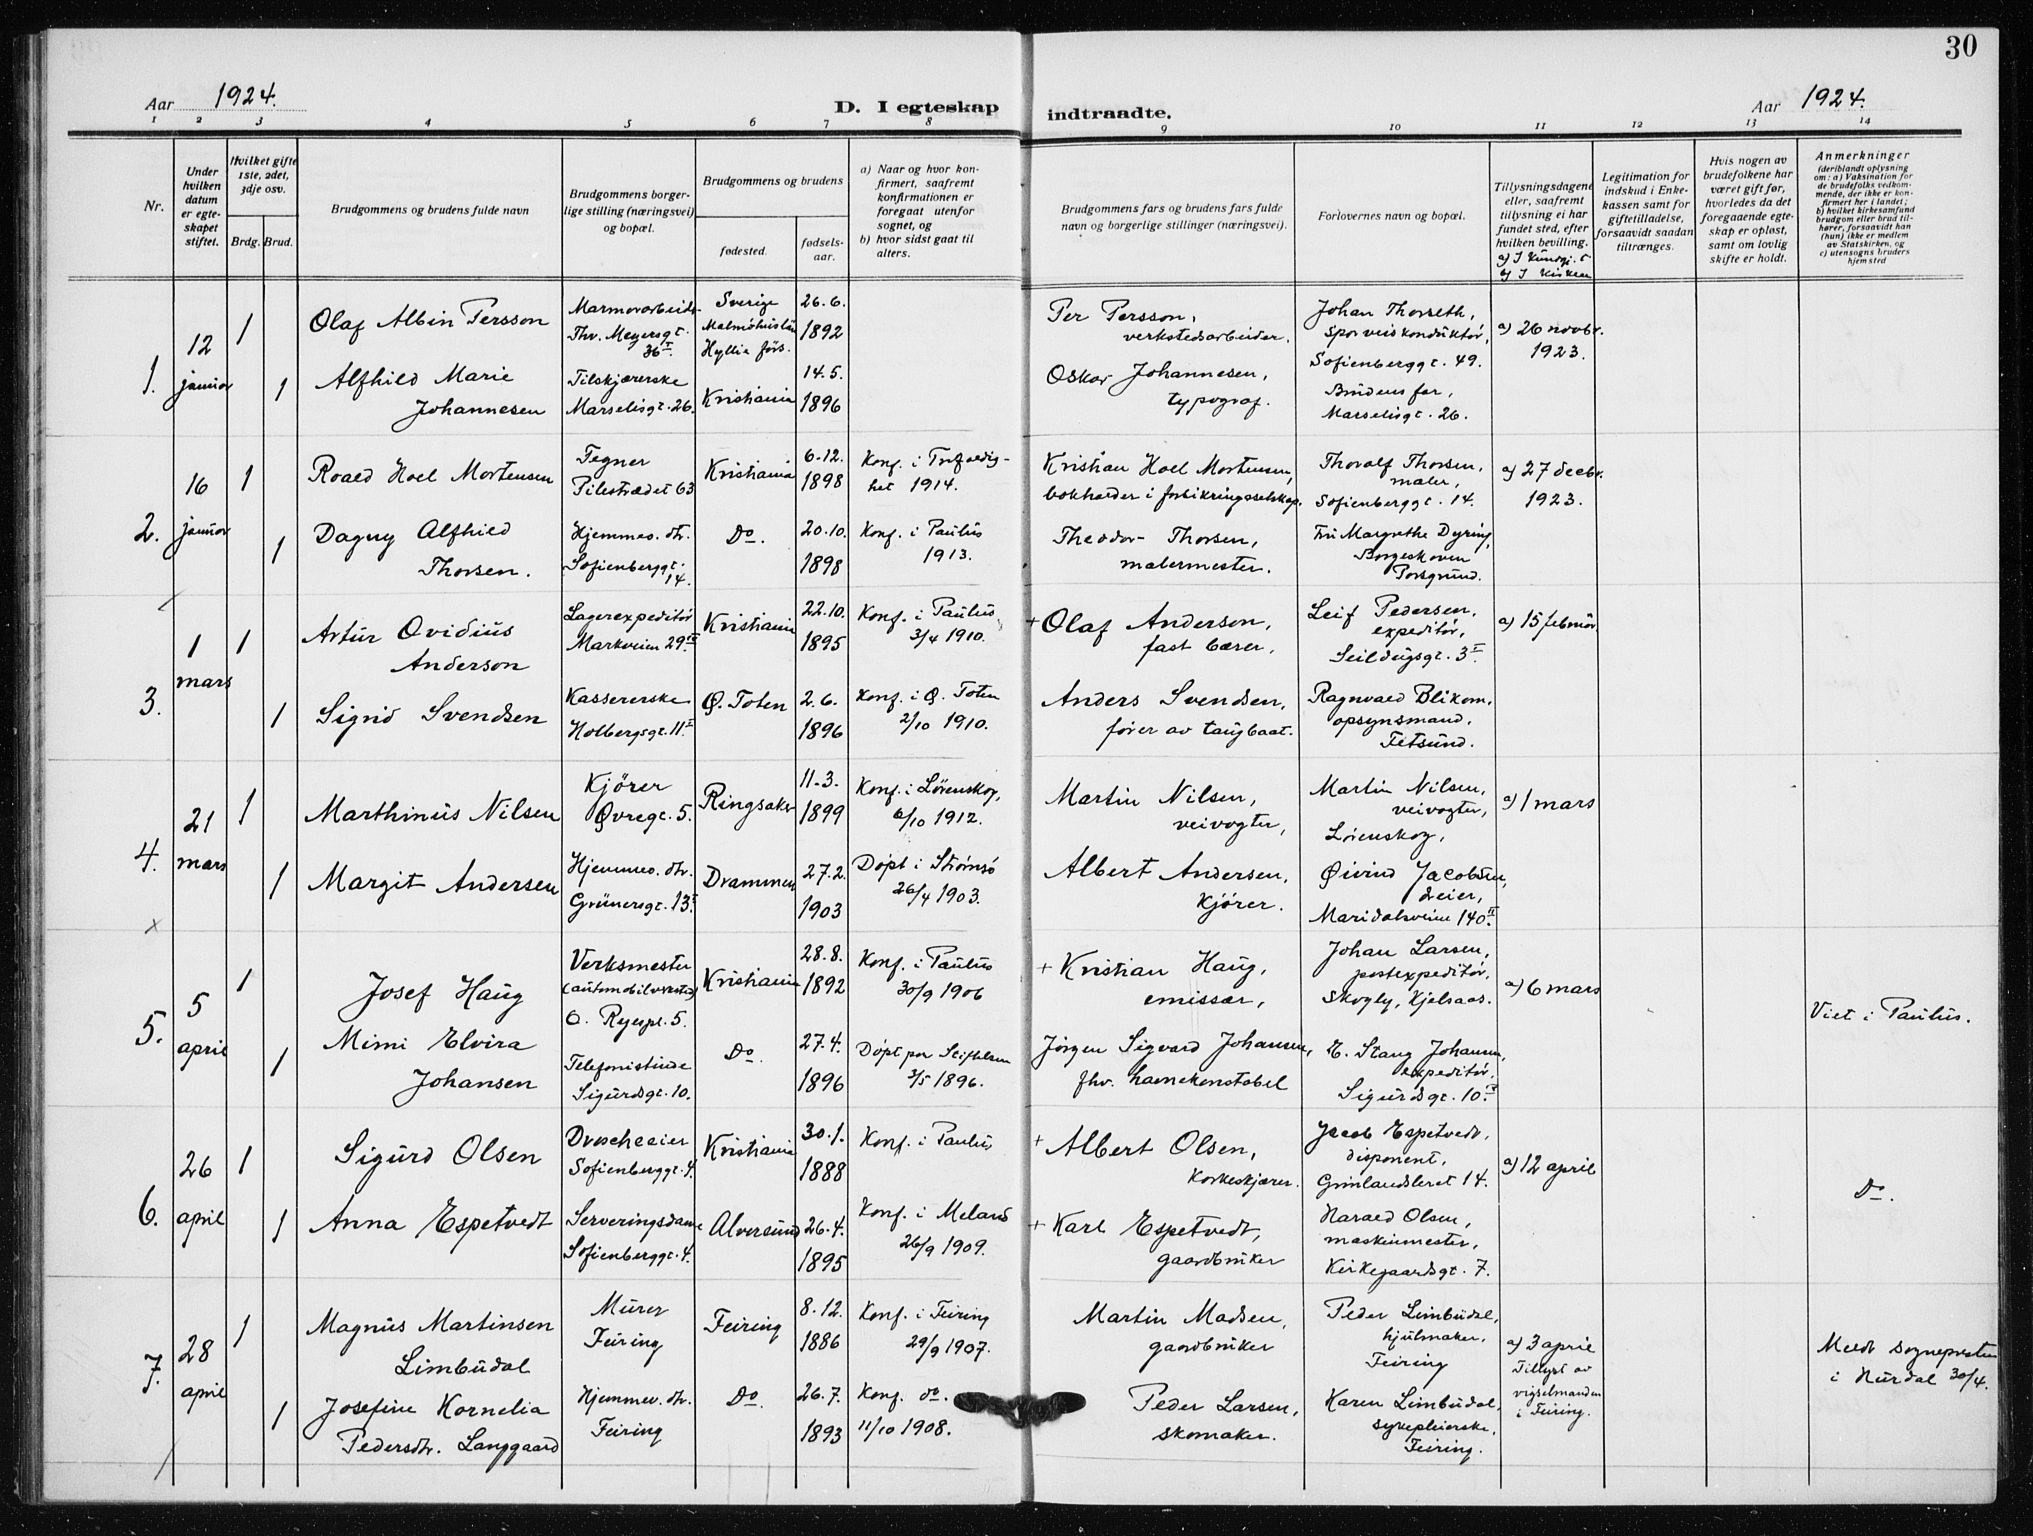 30
Aar 1924.
D. I egteskap indtraadte.
Aar 1924.
1 2 3 4 5 6 7 8 9 10 11 12 13 14
Nr.
Under hvilken datum er egte-skapet stiftet.
Hvilket gifte 1ste, 2det, 3dje osv.
Brdg. Brud.
Brudgommens og brudens fulde navn
Brudgommens borger-lige stilling (næringsvei) og bopæl.
Brudgommens og brudens
fødested.
fødsels-aar.
a) Naar og hvor kon-firmert, saafremt konfirmationen er foregaat utenfor sognet, og
b) hvor sidst gaat til alters.
Brudgommens fars og brudens fars fulde navn og borgerlige stillinger (næringsvei).
Forlovernes navn og bopæl.
Tillysningsdagene eller, saafremt tillysning ei har fundet sted, efter hvilken bevilling.
a) I Kundgj.
b) I Kirken
Legitimation for indskud i Enke-kassen samt for giftetilladelse, forsaavidt saadan tiltrænges.
Hvis nogen av brudefolkene har været gift før, hvorledes da det foregaaende egte-skap er opløst, samt om lovlig skifte er holdt.
Anmerkninger
(deriblandt oplysning om: a) Vaksination for de brudefolks vedkom-mende, der ikke er kon-firmert her i landet; b) hvilket kirkesamfund brudgom eller brud til-hører, forsaavidt han (hun) ikke er medlem av Statskirken, og c) utensogns bruders hjemsted
1.
12 januar
1
Olaf Albin Persson
Marmorarbeider
Thv. Meyersgt. 36 I.
Sverige
Malmöhus län
Hyllie förs.
26.6.
1892
Per Persson,
verkstedsarbeider.
Johan Thorseth,
sporveiskonduktør,
Sofienberggt. 49.
a) 26 novbr.
1923.
1
Alfhild Marie
Johannesen
Tilskjærerske
Marselisgt. 26.
Kristiania
14.5.
1896
Oskar Johannesen,
typograf.
Brudens far,
Marselisgt. 26.
2.
16 januar
1
Roald Hoel Mortensen
Tegner
Pilestrædet 63
Kristiania
6.12.
1898
Konf. i Trefoldig-
het 1914.
Kristian Hoel Mortensen,
bokholder i forsikringsselskap.
Thoralf Thorsen,
maler,
Sofienberggt. 14.
a) 27 decbr.
1923.
1
Dagny Alfhild
Thorsen.
Hjemmev. dtr.
Sofienberggt.
14.
Do.
20.10.
1898
Konf. i Paulus
1913.
Theodor Thorsen,
malermester.
Fru Margrethe Dyring,
Borgeskoven
Porsgrund.
3.
1 mars
1
Artur Ovidius
Anderson
Lagerexpeditør
Markveien 29 III
Kristiania
22.10.
1895
Konf. i Paulus
3/4 1910.
+ Olaf Anderson,
fast bærer,
Leif Pedersen,
expeditør,
Seildugsgt. 3 I.
a) 15 februar
1
Sigrid Svendsen
Kassererske
Holbergsgt. 11 I
Ø. Toten
2.6.
1896
Konf. i Ø. Toten
2/10 1910.
Anders Svendsen,
fører av taugbaat.
Ragnvald Blikom,
opsynsmand,
Fetsund.
4.
21 mars
1
Marthinus Nilsen
Kjører
Øvregt. 5.
Ringsaker
11.3.
1899
Konf. i Lørenskog,
6/10 1912.
Martin Nilsen,
veivogter,
Martin Nilsen,
veivogter,
Lørenskog,
a) 1 mars
1
Margit Andersen
Hjemmev. dtr.
Grünersgt. 13 I.
Drammen
27.2.
1903
Døpt i Strømsø
26/4 1903.
Albert Andersen,
Kjører.
Øivind Jacobsen,
dreier,
Maridalsveien 140 II.
5.
5 april
1
Josef Haug
Verksmester
(automobilverksted)
O. Ryespl. 5.
Kristiania
28.8.
1892
Konf. i Paulus
30/9 1906
+ Kristian Haug,
emissær,
Johan Larsen,
postexpeditør,
Skogly, Kjelsaas.
a) 6 mars
Viet i Paulus.
1
Mimi Elvira
Johansen
Telefonistinde
Sigurdsgt. 10.
Do.
27.4.
1896
Døpt paa Stiftelsen
3/5 1896.
Jørgen Sigvard Johansen,
fhv. havnekonstabel
E. Stang Johansen,
expeditør,
Sigurdsgt. 10.
6.
26 april
1
Sigurd Olsen
Droscheeier
Sofienberggt. 4.
Kristiania
30.1.
1888
Konf. i Paulus
+ Albert Olsen,
Korkeskjærer.
Jacob Espetvedt,
disponent,
Grønlandsleret 14.
a) 12 april
Do.
1
Anna Espetvedt
Serveringsdame
Sofienberggt. 4.
Alversund
26.4.
1895
Konf. i Meland
26/9 1909.
+ Karl Espetvedt,
gaardbruker
Harald Olsen,
maskinmester,
Kirkegaardsgt. 7.
7.
28 april
1
Magnus Martinsen
Limbudal
Murer
Feiring
Feiring
8.12.
1886
Konf. i Feiring
29/9 1907.
Martin Madsen,
gaardbruker
Peder Limbudal,
hjulmaker,
Feiring
a) 3 april
Tillyst av
vigselmanden
i Feiring.
Meldt sognepresten
i Hurdal 30/4.
1
Josefine Kornelia
Pedersdtr. Langgaard
Hjemmev. dtr.
Feiring
Do.
26.7.
1893
Konf. do.
11/10 1908.
Peder Larsen,
skomaker.
Karen Limbudal,
sykepleierske,
Feiring.